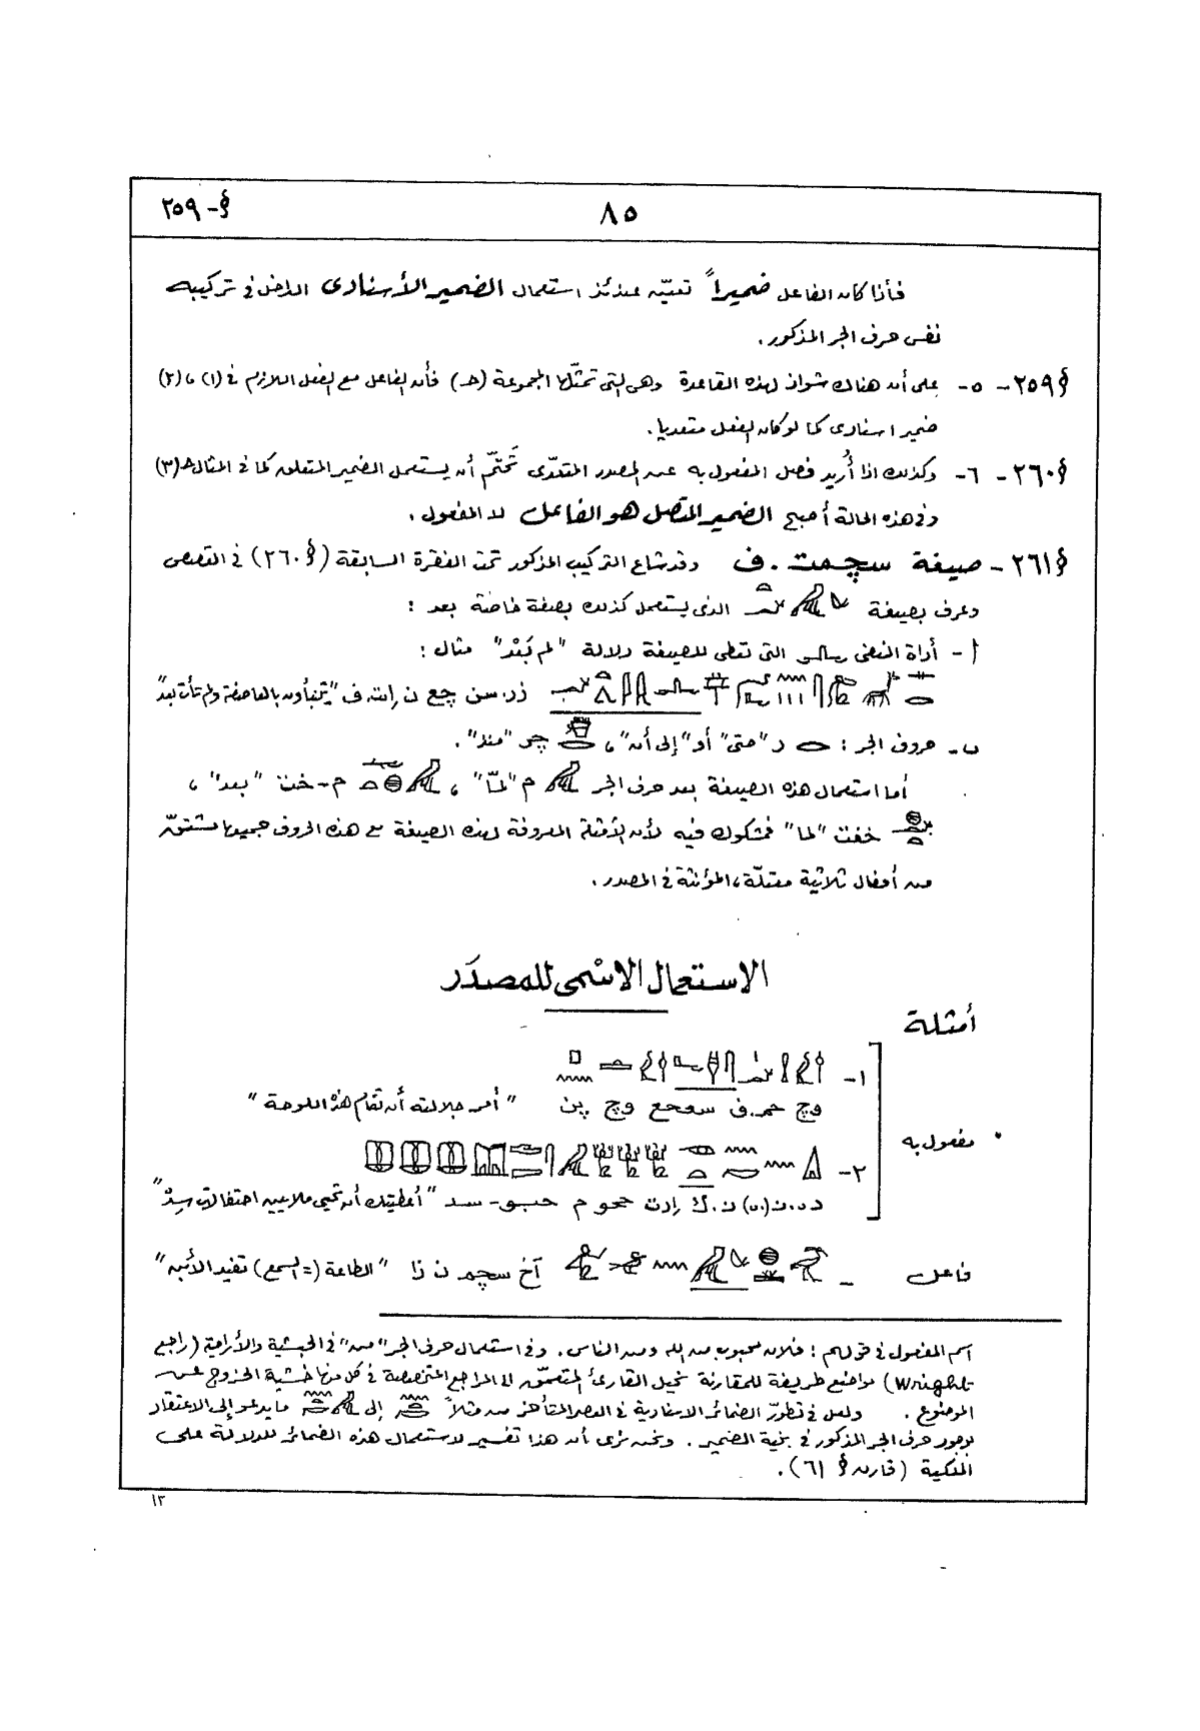 §- ٢٥٩
٨٥
فأذا كان الفاعل ضميراً تعيّن عندئذ استعمال الضمير الأسنادى الداخل فى تركيبه
نفس حرف الجر المذكور.
§٢٥٩- ٥- على أن هناك شواذ لهذه القاعدة وهى التى تمثلها المجموعة (حـ) فأن الفاعل مع الفعل اللازم فى (١)، (٢)
ضمير اسنادى كما لو كان الفعل متعديا.
§٢٦٠- ٦- وكذلك اذا أُريد فصل المفعول به عن المصدر المتعدّى تَحَتَّم أن يستعمل الضمير المتعلق كما فى المثال حـ(٣)
وفى هذه الحالة أصبح الضمير المتصل هو الفاعل لا المفعول.
§٢٦١- صيغة سچمت.ف وقد شاع التركيب المذكور تحت الفقرة السابقة (§٢٦٠) فى القصص
وعرف بصيغة الذى يستعمل كذلك بصفة خاصة بعد :
أ - أداة النفى التى تعطى للصيغة دلالة "لم بَعْد" مثال :
ذر.سن چع ن رات.ف "يتنبأون بالعاصفة ولم تأت بعدً"
ب- حروف الجر : ر "حتى" أو "إلى أن"، چر "منذ".
أما استعمال هذه الصيغة بعد حرف الجر م "لمّا" ، م-خت "بعد" ،
خفت "لما" فمشكوك فيه لأن الأمثلة المعروفة لهذه الصيغة مع هذه الحروف جميعها مشتقّة
من أفعال ثلاثية معتلّة، المؤنثة فى المصدر.
الاستعمال الاسْمى للمصدَر
أمثلة
١-
وچ حمـ.ف سعحع وچ پن "أمر جلالته أن تقام هذه اللوحة"
مفعول به
٢-
د.ن(.ن) ن.ك رات ححو م حبو-سد "أعطيتك أن تحيى ملايين احتفالات سِدْ"
فاعل - آخ سچم ن زا "الطاعة (= السمع) تفيد الأبن"
اسم المفعول فى قولهم : فلان محبوب من الله ومن الناس. وفى استعمال حرف الجر "من" فى الحبشية والأرامية (راجع
Wright) مواضع طريفة للمقارنة نحيل القارئ المتعمّق الى المراجع المختصة فى كل منها خشية الخروج عن
الموضوع. ولعل فى تطوّر الضمائر الاسنادية فى العصر المتأخر من مثلاً إلى ما يدعو إلى الاعتقاد
بوجود حرف الجر المذكور فى بنية الضمير. ونحن نرى أن هذا تفسير لاستعمال هذه الضمائر للدلالة على
الملكية (قارن § ٦١).
١٣